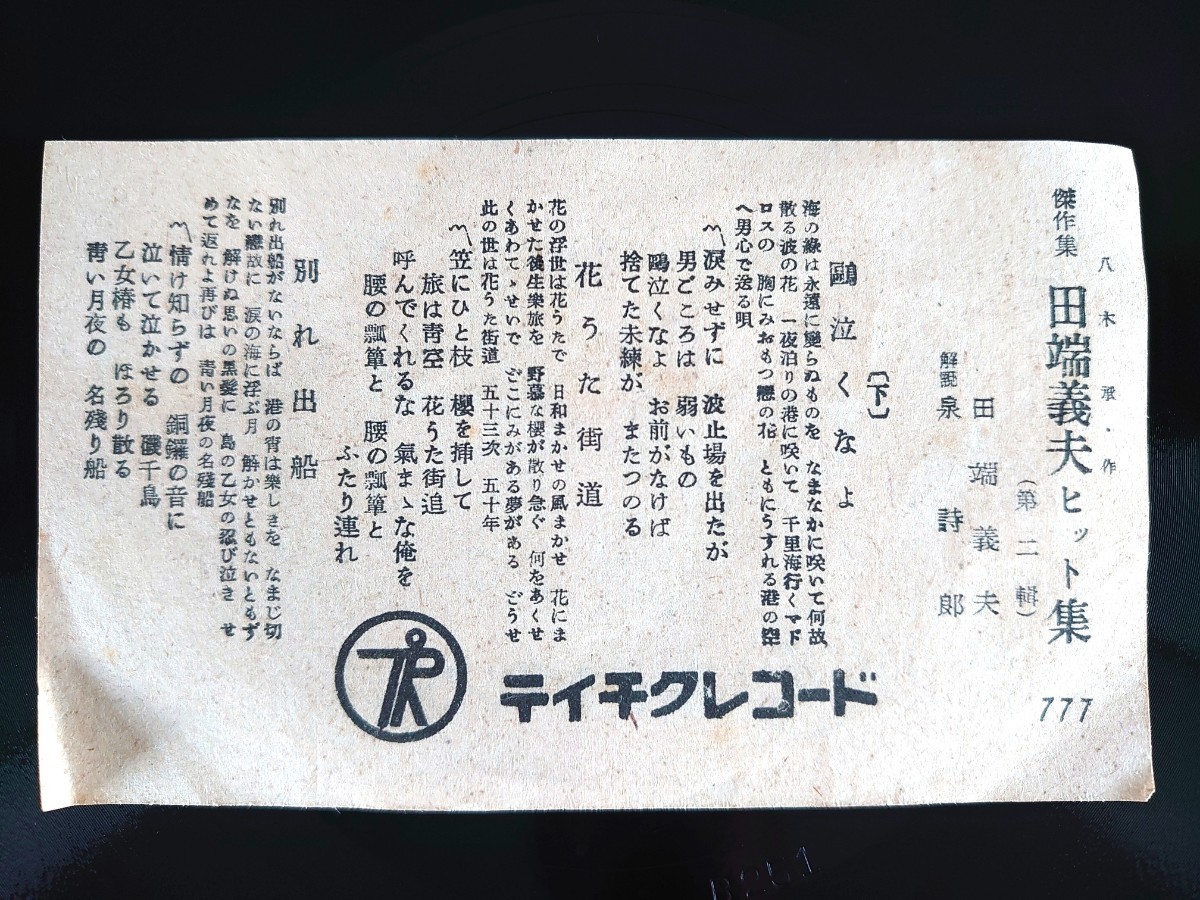 八木承作
傑作集 田端義夫ヒット集
(第二輯)
田端義夫
解説 泉詩郎
777
〔下〕
鷗泣くなよ
海の綠は永遠に變らぬものを なまなかに咲いて何故
散る波の花 一夜泊りの港に咲いて 千里海行くマド
ロスの 胸にみおもつ戀の花 ともにうすれる港の空
へ男心で送る唄
〽涙みせずに 波止場を出たが
男ごころは 弱いもの
鷗泣くなよ お前がなけば
捨てた未練が またつのる
花うた街道
花の浮世は花うたで 日和まかせの風まかせ 花にま
かせた後生樂旅を 野慕な櫻が散り急ぐ 何をあくせ
くあわてゝせいで どこにみがある夢がある どうせ
此の世は花うた街道 五十三次 五十年
〽笠にひと枝 櫻を挿して
旅は靑空 花うた街追
呼んでくれるな 氣まゝな俺を
腰の瓢簞と 腰の瓢簞と
ふたり連れ
別れ出船
別れ出船がないならば 港の宵は樂しさを なまじ切
ない戀故に 涙の海に浮ぶ月 解かせともないともず
なを 解けぬ思いの黒髪に 島の乙女の忍び泣き せ
めて返れよ再びは 靑い月夜の名殘船
〽情け知らずの 銅鑼の音に
泣いて泣かせる 磯千鳥
乙女椿も ほろり散る
靑い月夜の 名殘り船
TR
テイチクレコード